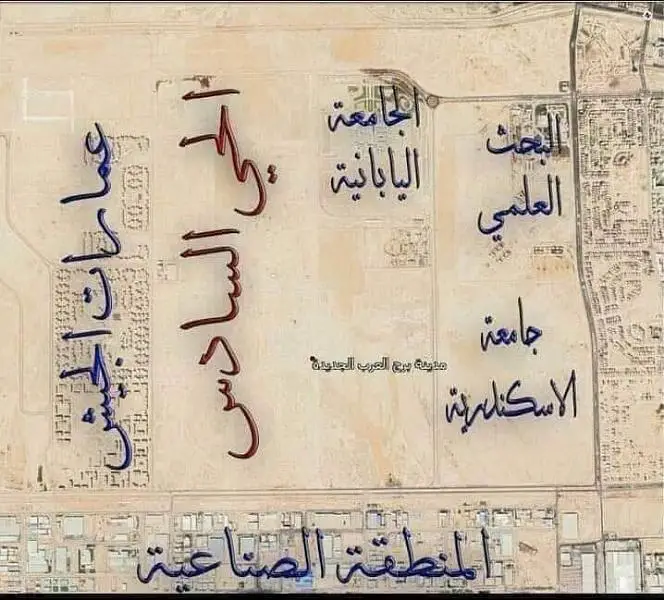 الجامعة
اليابانية
البحث
العلمي
الحي السادس
عمارات الجيش
جامعة
الاسكندرية
مدينة برج العرب الجديدة
المنطقة الصناعية